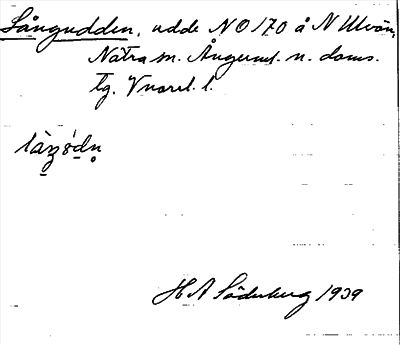 Långudden, udde NO 170 å N Ulvön,
Nätra sn. Ångerml. n. doms.
tg. Vnorrl. l.
H A Söderberg 1939